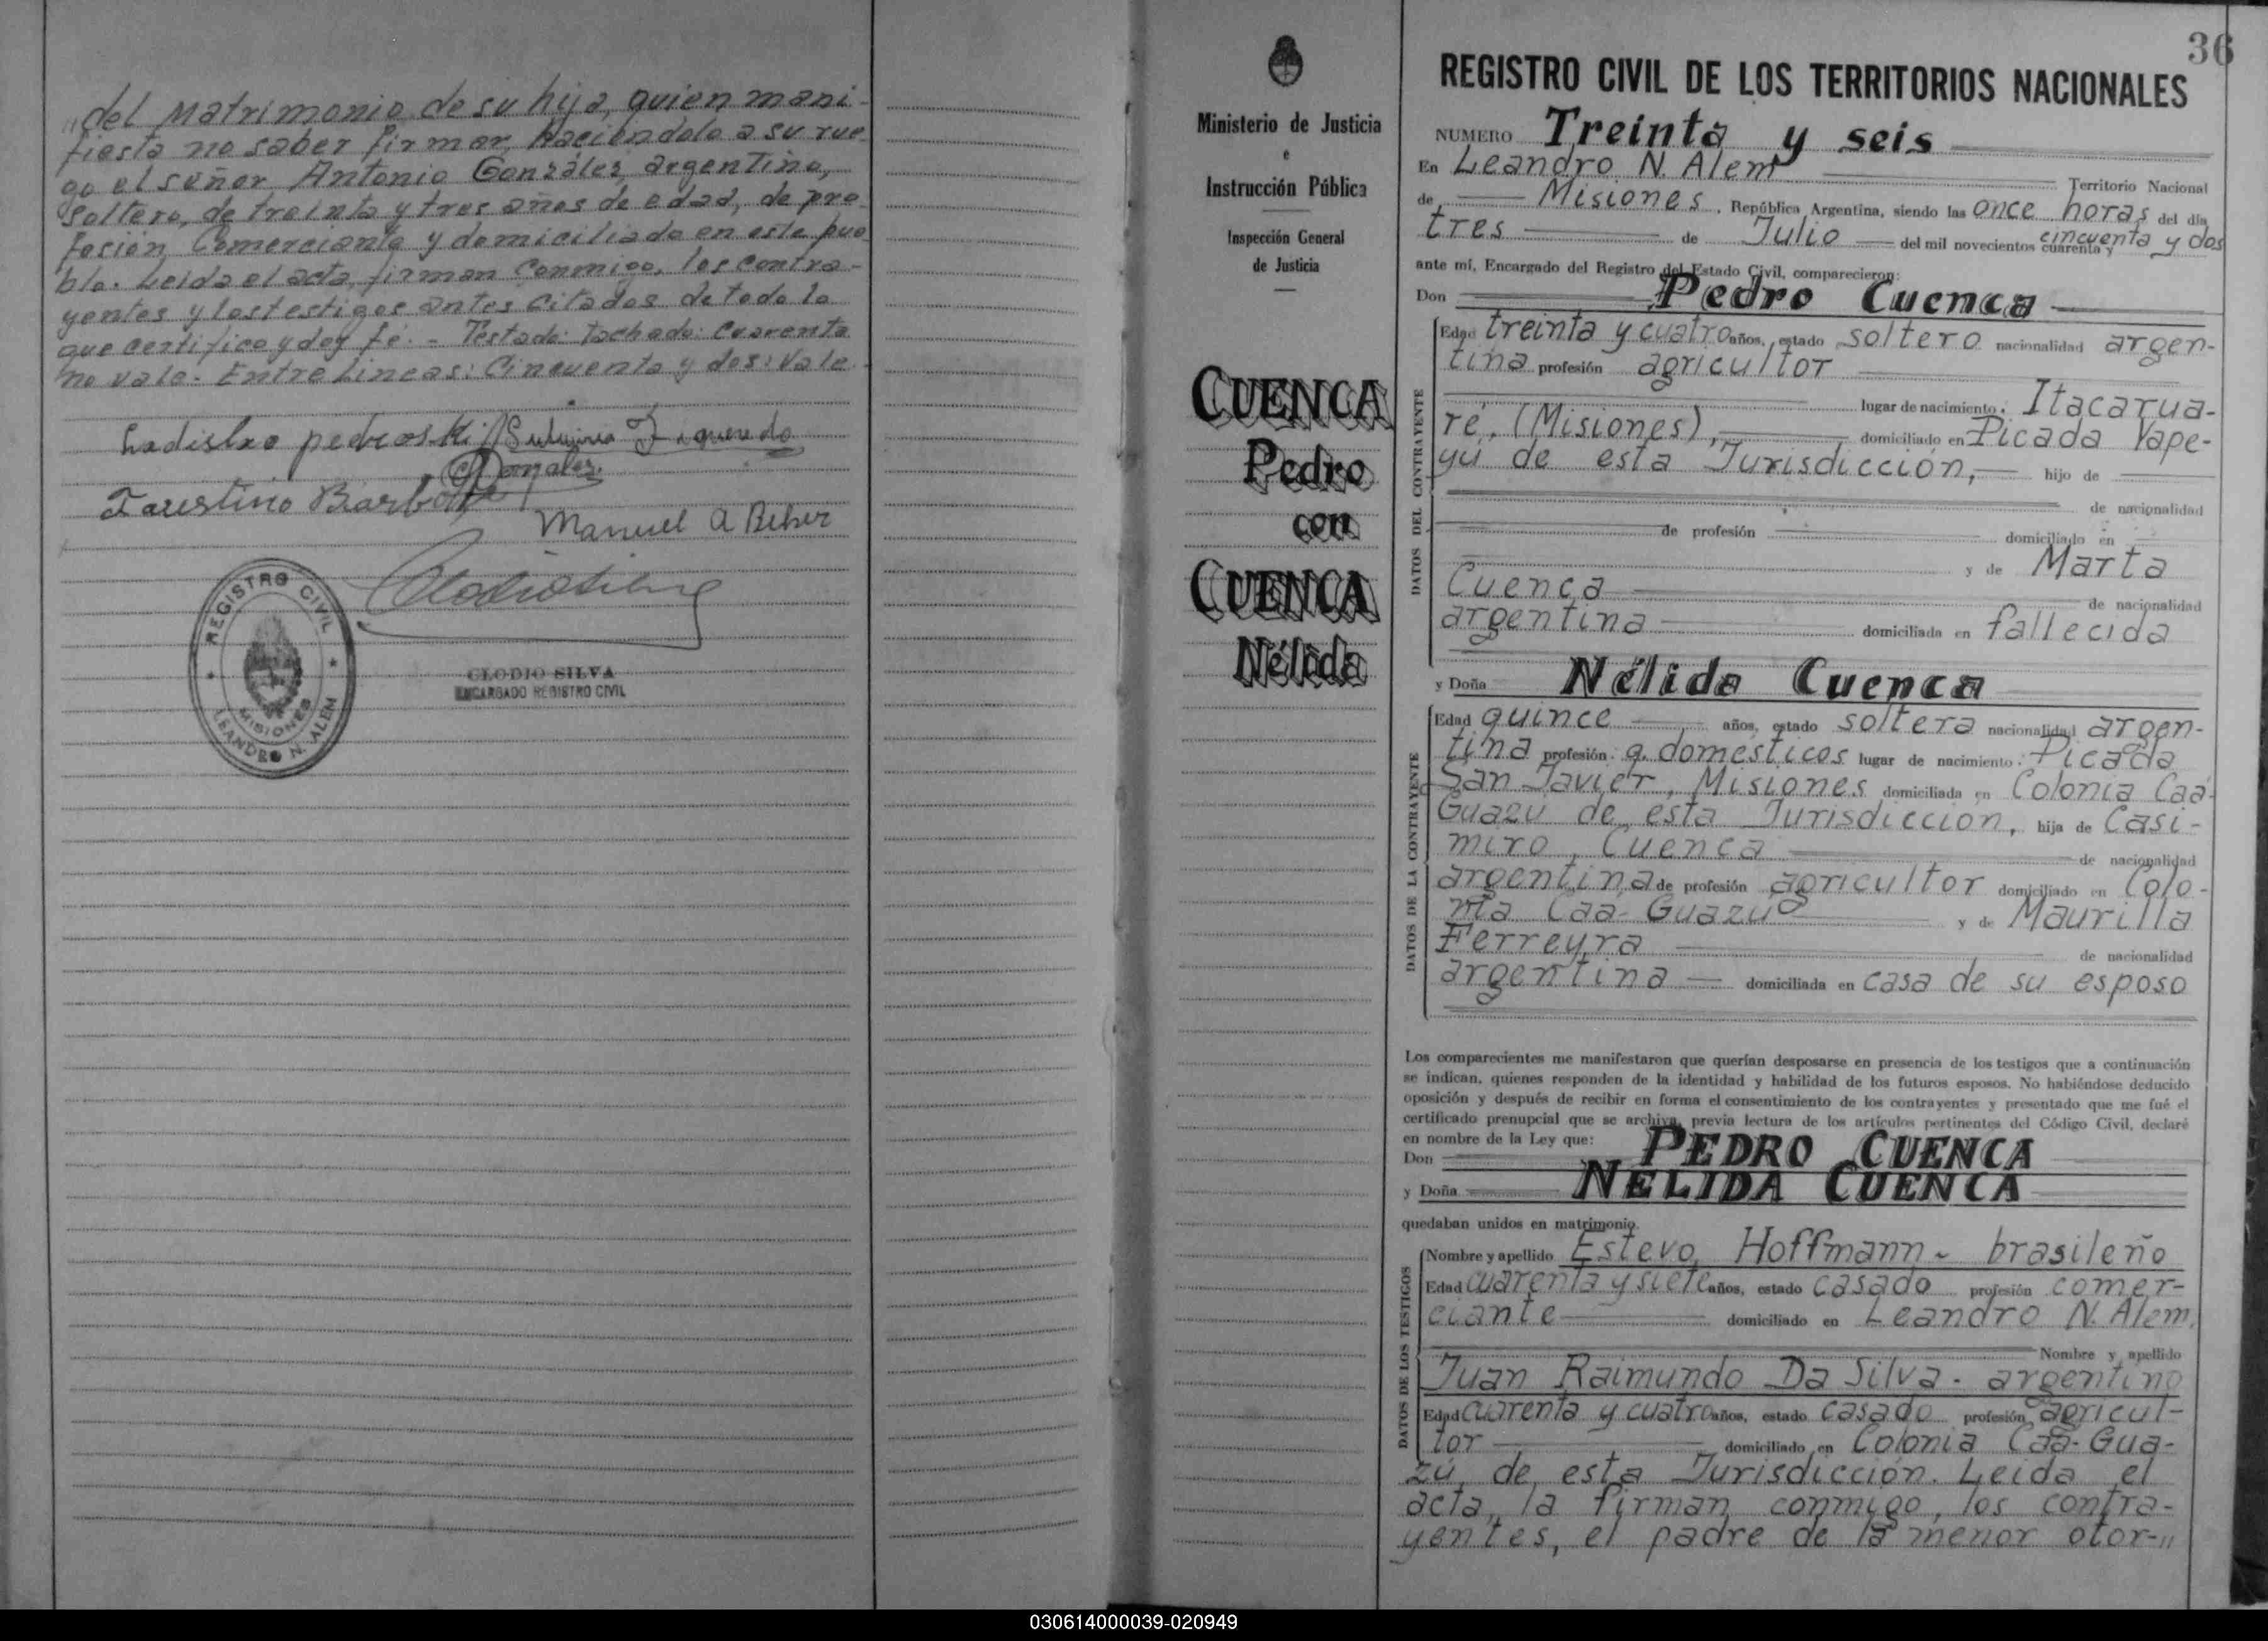 „del Matrimonio de su hija, quien mani-
fiesta no saber firmar, haciéndolo a su rue-
go el señor Antonio González, argentino,
soltero, de treinta y tres años de edad, de pro-
fesión Comerciante y domiciliado en este pue-
blo. Leída el acta, firman conmigo, los contra-
yentes y los testigos antes citados de todo lo
que certifico y doy fé. - Testado: tachado: cuarenta
no vale. Entre Lineas: Cincuenta y dos: Vale.
Ladislao
Faustino
Manuel A
REGISTRO CIVIL
MISIONES
LEANDRO N. ALEM
CLODIO SILVA
ENCARGADO REGISTRO CIVIL
Ministerio de Justicia
e
Instrucción Pública
Inspección General
de Justicia
CUENCA
Pedro
con
CUENCA
Nélida
36
REGISTRO CIVIL DE LOS TERRITORIOS NACIONALES
NUMERO Treinta y seis
En Leandro N. Alem Territorio Nacional
de Misiones, República Argentina, siendo las once horas del día
tres de Julio del mil novecientos cuarenta y cincuenta y dos
ante mí, Encargado del Registro del Estado Civil, comparecieron:
Don Pedro Cuenca
DATOS DEL CONTRAYENTE
Edad treinta y cuatro años, estado soltero nacionalidad argen-
tina profesión agricultor
lugar de nacimiento: Itacarua-
ré, (Misiones), domiciliado en Picada Yape-
yú de esta Jurisdicción, hijo de
de nacionalidad
de profesión domiciliado en
y de Marta
Cuenca de nacionalidad
argentina domiciliada en fallecida
y Doña Nélida Cuenca
DATOS DE LA CONTRAYENTE
Edad quince años, estado soltera nacionalidad argen-
tina profesión: q. domésticos lugar de nacimiento: Picada
San Javier, Misiones domiciliada en Colonia Caá-
Guazú de esta Jurisdicción, hija de Casi-
miro Cuenca de nacionalidad
argentina de profesión agricultor domiciliado en Colo-
nia Caá-Guazú y de Maurilia
Ferreyra de nacionalidad
argentina domiciliada en casa de su esposo
Los comparecientes me manifestaron que querían desposarse en presencia de los testigos que a continuación
se indican, quienes responden de la identidad y habilidad de los futuros esposos. No habiéndose deducido
oposición y después de recibir en forma el consentimiento de los contrayentes y presentado que me fué el
certificado prenupcial que se archiva, previa lectura de los artículos pertinentes del Código Civil, declaré
en nombre de la Ley que:
Don PEDRO CUENCA
y Doña NELIDA CUENCA
quedaban unidos en matrimonio.
DATOS DE LOS TESTIGOS
Nombre y apellido Estevo Hoffmann - brasileño
Edad cuarenta y siete años, estado casado profesión comer-
ciante domiciliado en Leandro N. Alem.
Nombre y apellido
Juan Raimundo Da Silva - argentino
Edad cuarenta y cuatro años, estado casado profesión agricul-
tor domiciliado en Colonia Caá-Gua-
zú de esta Jurisdicción. Leída el
acta, la firman conmigo, los contra-
yentes, el padre de la menor otor-„
030614000039-020949